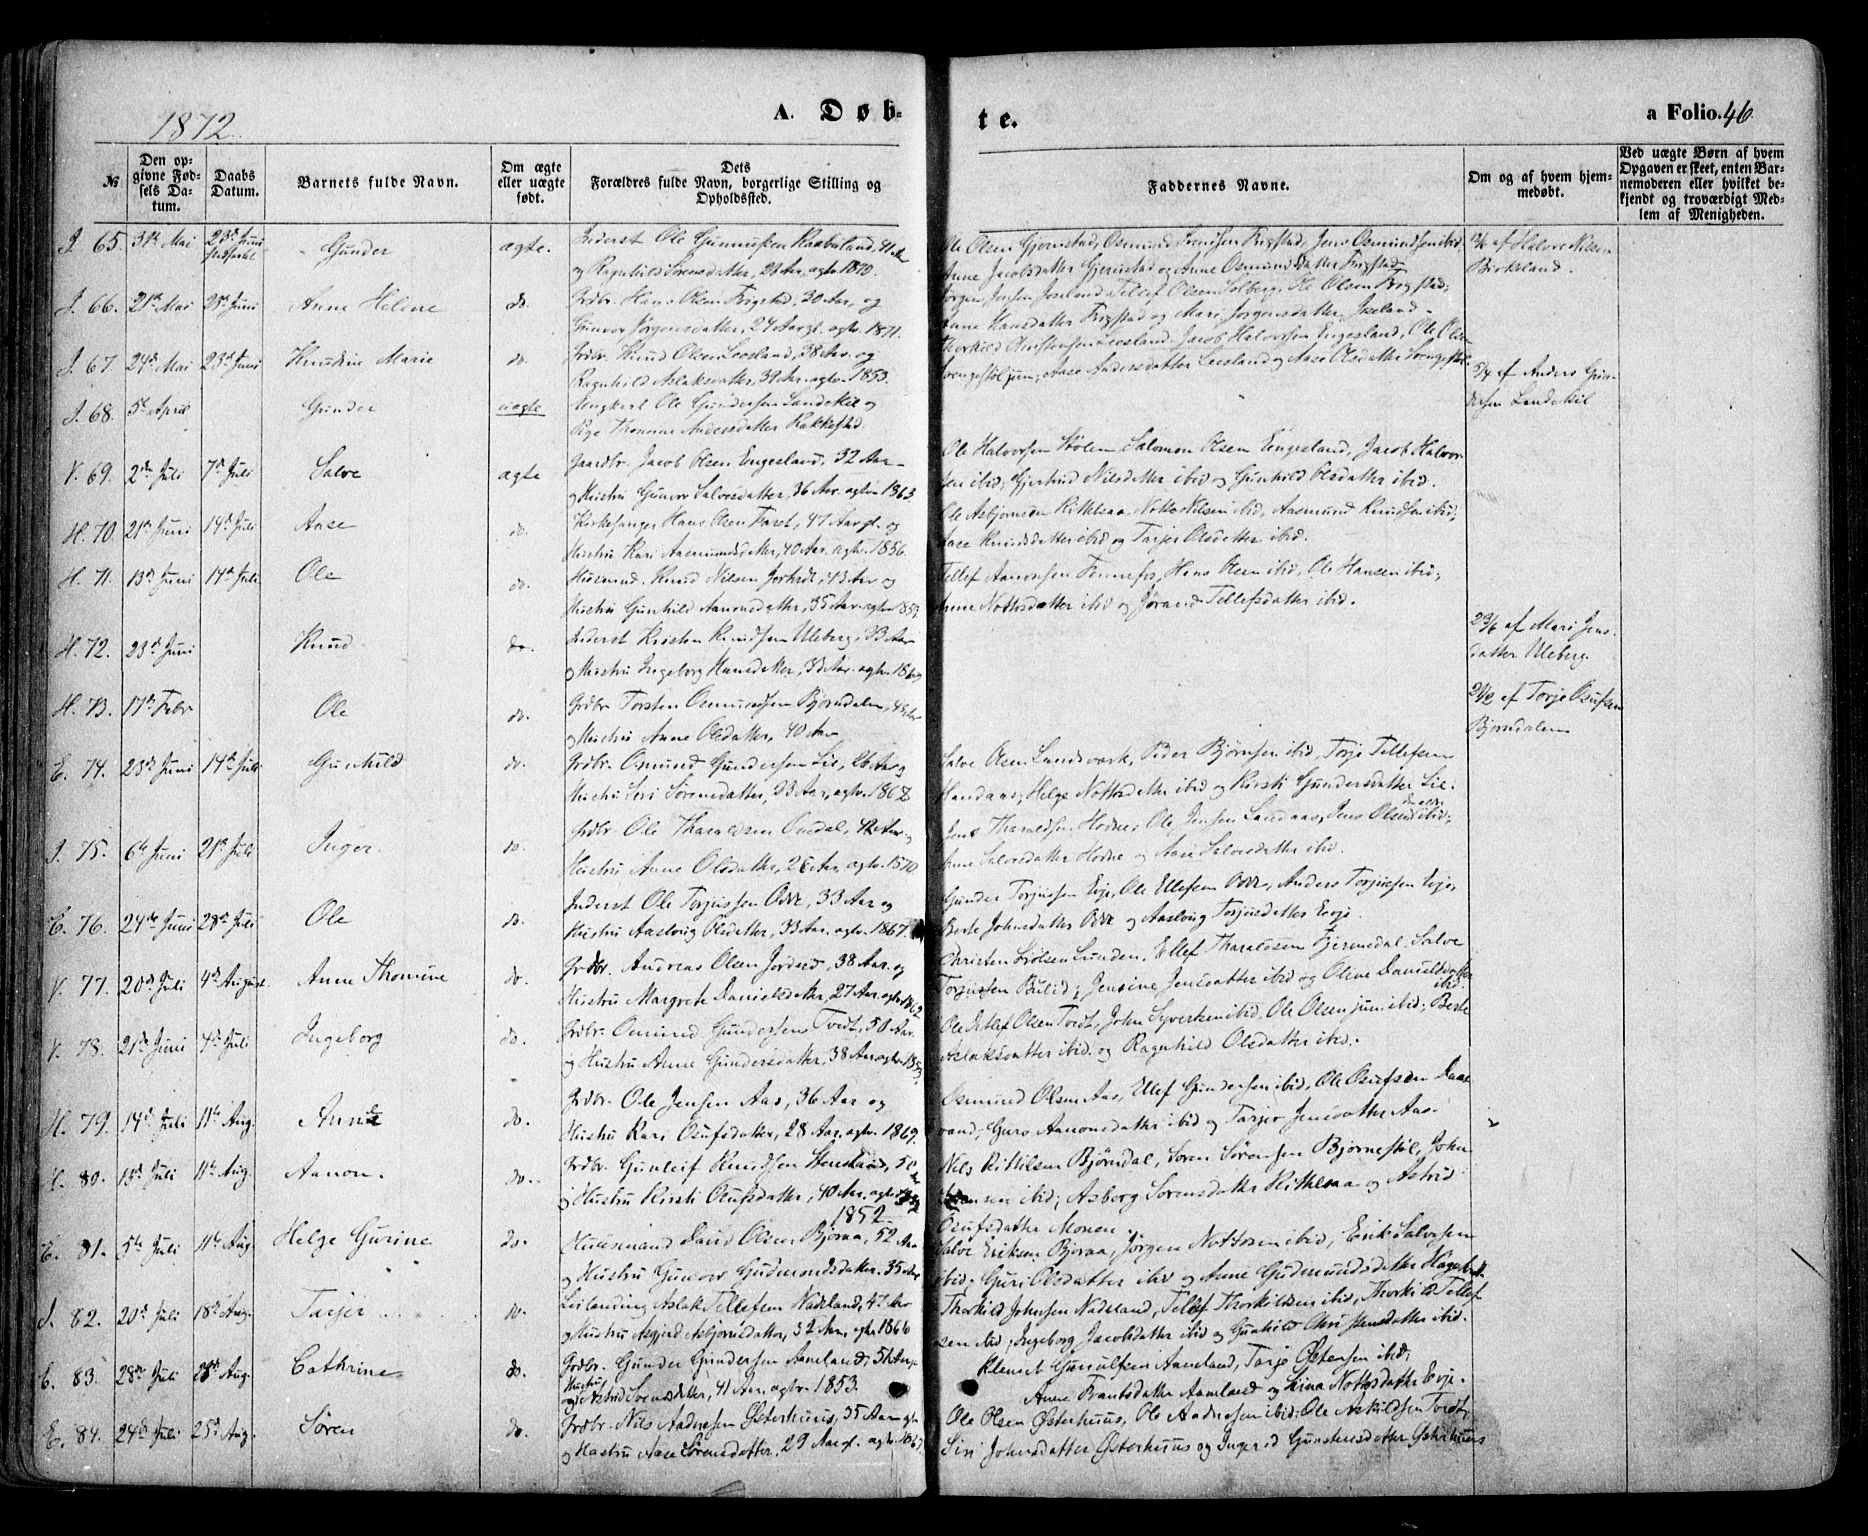 1872.
A. Døb-
te.
a Folio. 46
№
Den op-
givne Fød-
sels Da-
tum.
Daabs
Datum.
Barnets fulde Navn.
Om ægte
eller uægte
født.
Dets
Forældres fulde Navn, borgerlige Stilling og
Opholdssted.
Faddernes Navne.
Om og af hvem hjem-
medøbt.
Ved uægte Børn af hvem
Opgaven er skeet, enten Bar-
nemoderen eller hvilket be-
kjendt og troværdigt Med-
lem af Menigheden.
I. 65. 31te Mai 23de Juni Gunder ægte. Inderst Ole Gunnufsen Raabuland,
og Ragnhild Sørensdatter, 23 Aar, agtv. 1870.
Ole Olsen Gjerustad, Osmund Svendsen Frigstad, Jens Osmundsen ibid,
Anne Jacobsdatter Gjerustad og Anne Osmundsdatter Frigstad
af Halvor Nilsen
Birkeland.
I. 66. 21de Mai 23de Juni Anne Helene do. Grdbr. Hans Olsen Frigstad, 30 Aar, og
Gunvor Jørgensdatter, 24 Aar gl. agtv. 1871.
Jørgen Josefsen Joseland, Tellef Olsen Solberg, Ole Olsen Frigstad,
Anne Hansdatter Frigstad og Mari Jørgensdatter Joseland.
I. 67. 24de Mai 23de Juni Knudine Marie do. Grdbr. Knud Olsen Lossland, 38 Aar og
Ragnhild Aslaksdatter, 39 Aar, agtv. 1853.
Thorkild Christensen Lossland, Jacob Halvorsen Engesland, Ole Olsen
jun; Aase Andersdatter Lossland og Aase Olsdatter
I. 68. 5te April Gunder uægte Ungkarl Ole Gundersen Landskil og
Pige Thomine Andersdatter Rakkestad.
5/4 af Anders Gun-
dersen Landskil
V. 69. 2den Juli 7de Juli Salve ægte Gaardbr. Jacob Olsen Engesland, 32 Aar
og Hustru Gunvor Salvesdatter, 36 Aar, agtv. 1863
Ole Halvorsen Stølen, Salomon Olsen Engesland, Jacob Halvor-
sen ibid; Gjertrud Nilsdatter ibid og Gunhild Olsdatter ibid.
H. 70. 21de Juni 14de Juli Aase do. Kirkesanger Hans Olsen Faret, 47 Aar gl. og
Hustru Kari Aasmundsdatter, 40 Aar, agtv. 1856.
Ole Asbjørnsen Kittelsaa, Notto Nilsen ibid, Aasmund Knudsen ibid,
Aase Knudsdatter ibid og Tarjer Olsdatter ibid.
H. 71. 13de Juni 14de Juli Ole do. Husmd. Knud Nilsen 43 Aar og
Hustru Gunhild Aanonsdatter, 35 Aar, agtv. 1859
Tellef Aanonsen Fennefos, Hans Olsen ibid, Ole Hansen ibid,
Anne Nottosdatter ibid og Jørand Tellefsdatter ibid.
H. 72. 23de Juni Knud do. Inderst Kristen Knudsen Uleberg, 33 Aar
og Hustru Ingeborg Hansdatter,
23/6 af Mari Jens-
datter Uleberg.
H. 73. 17de Febr Ole do. Grdbr Torsten Osmundsen Bjørndalen,
og Hustru Anne Olsdatter, 40 Aar
af Torje Osufsen
Bjørndalen
E. 74. 23de Juni 14de Juli Gunhild do. Grdbr. Osmund Gundersen Lie, 26 Aar og
Hustru Siri Sørensdatter, 23 Aar, agtv. 1868
Salve Olsen Landsverk, Peder Bjørnsen ibid, Torje Tellefsen
Handaas; Helge Nottosdatter ibid og Kirsti Gundersdatter Lie.
I. 75. 6te Juni 21de Juli Inger. do. Grdbr. Ole Tharaldsen Omdal, 42 Aar og
Hustru Anne Olsdatter, 26 Aar, agtv. 1870
Jens Tharaldsen Hodne, Ole Jensen Landaas, Jens Olsen ibid;
Anne Salvesdatter Hodne og Aase Salvesdatter ibid.
E. 76. 24de Juni 28de Juli Ole do. Inderst Ole Torjussen Odde, 33 Aar og
Hustru Aaslaug Olsdatter, 33 Aar, agtv. 1867.
Gunder Torjussen Evje, Ole Ellefsen Odde, Anders Torjussen Evje,
Berte Johnsdatter Odde og Aaslaug Torjusdatter Evje.
V. 77. 20de Juli 4de August Anne Thomine do. Grdbr. Andreas Olsen Jorderd, 38 Aar og
Hustru Margrete Danielsdatter, 27 Aar, agtv. 1862
Christen Lunden, Ellef Tharaldsen Fjermedal, Salve
Torjussen Bulid; Jensine Jensdatter ibid og Oline Danielsdatter
ibid.
V. 78. 21de Juni 4de Juli Ingeborg do. Grdbr. Osmund Gundersen Tveit, 50 Aar
og Hustru Anne Gundersdatter, 38 Aar, agtv. 1853.
Ole Olsen Tveit, John Syvertsen ibid, Ole Olsen jun. ibid; Berte
Aslaksdatter ibid. og Ragnhild Olsdatter ibid.
H. 79. 14de Juli 11te Aug. Anne do. Grdbr. Ole Jensen Aas, 36 Aar og
Hustru Kari Osufsdatter, 28 Aar, agtv. 1869.
Osmund Olsen Aas, Ellef Gundersen ibid, Ole Osufsen Daas-
vand; Guro Aanonsdatter ibid og Tarjer Jensdatter Aas.
H. 80. 13de Juli 11te Aug. Aanon. do. Grdbr. Gunleif Knudsen 50 Aar
og Hustru Kirsti Osufsdatter, 40 Aar, agtv.
1852
Nils Kittilsen Bjørndal, Søren Sørensen Bjørnestøl, John
ibid; Asborg Sørensdatter Kittelsaa og Astrid
Osufsdatter Monen.
E. 81. 5te Juli 11te Aug. Helge Gurine do. Huusmand David Olsen Bjoraa, 52 Aar
og Hustru Gunvor Gudmundsdatter, 35 Aar
Salve Eriksen Bjoraa, Jørgen Nottosen ibid, Erik Salvesen
ibid; Guri Olsdatter ibid og Anne Gudmundsdatter
I. 82. 20de Juli 18de Aug. Tarjer do. Leilending Aslak Tellefsen Nadeland, 47 Aar
og Hustru Asgjerd Asbjørnsdatter, 32 Aar, agtv. 1866
Thorkild Johnsen Nadeland, Tellef Thorkildsen ibid, Thorkild Tellef-
sen ibid; Ingeborg Jacobsdatter ibid og Gunhild Christensdatter ibid.
E. 83. 28de Juli 18de Aug. Cathrine do. Grdbr. Gunder Gundersen Aaneland, 51 Aar
og Hustru Astrid Svensdatter, 41 Aar, agtv. 1853.
Klemet Gunulfsen Aaneland, Tarje Østensen ibid;
Anne Frantsdatter Aaneland og Stina Nottosdatter Evje.
E. 84. 24de Juli 25de Aug. Søren do. Grdbr. Nils Andresen Østerhuus, 35 Aar gl.
og Hustru Aase Sørensdatter, 29 Aar gl. agtv. 1867.
Ole Olsen Østerhuus, Ole Andresen ibid; Ole Askildsen Tveit,
Siri Johnsdatter Østerhuus og Ingerid Gunstensdatter Østerhuus